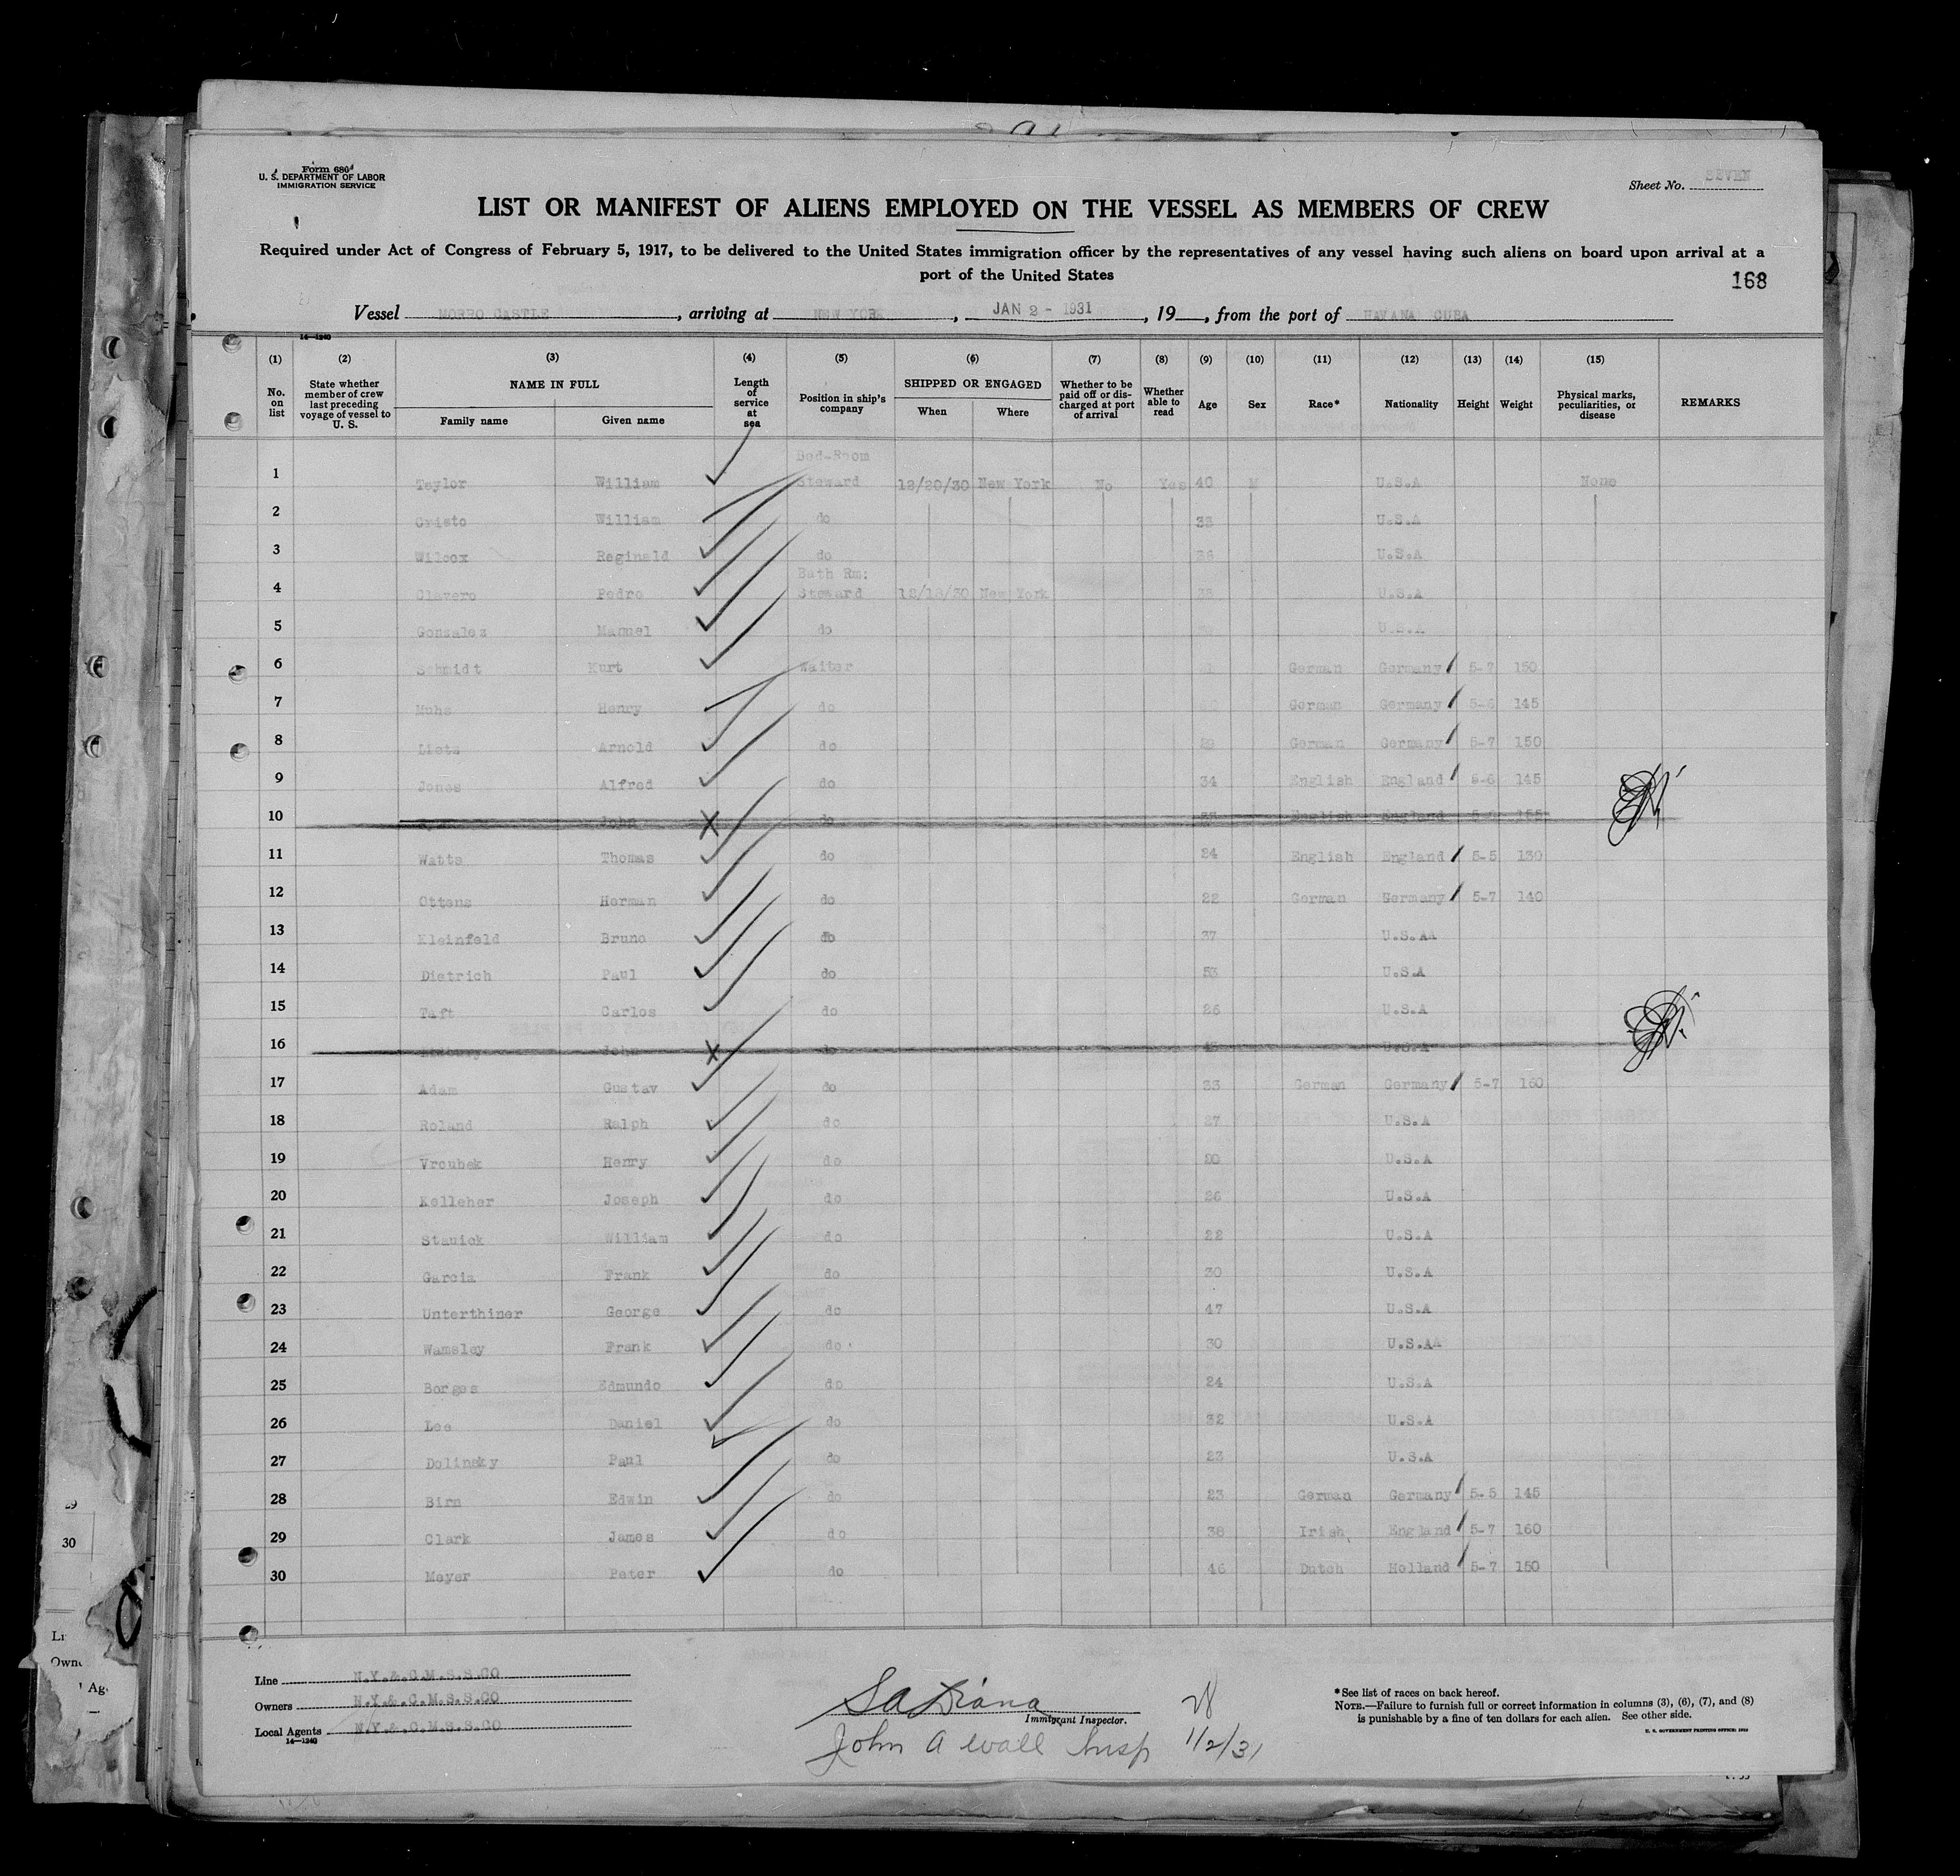 Form 680
U. S. DEPARTMENT OF LABOR
IMMIGRATION SERVICE
Sheet No. SEVEN
LIST OR MANIFEST OF ALIENS EMPLOYED ON THE VESSEL AS MEMBERS OF CREW
Required under Act of Congress of February 5, 1917, to be delivered to the United States immigration officer by the representatives of any vessel having such aliens on board upon arrival at a
port of the United States
168
Vessel MORRO CASTLE, arriving at NEW YORK, JAN 2 - 1931, 19, from the port of HAVANA CUBA
14—1240
(1) (2) (3) (4) (5) (6) (7) (8) (9) (10) (11) (12) (13) (14) (15)
No. on list State whether member of crew last preceding voyage of vessel to U. S. NAME IN FULL Family name Given name Length of service at sea Position in ship's company SHIPPED OR ENGAGED When Where Whether to be paid off or discharged at port of arrival Whether able to read Age Sex Race* Nationality Height Weight Physical marks, peculiarities, or disease REMARKS
Bed-Room
1 Taylor William Steward 12/20/30 New York No Yes 40 M U.S.A None
2 Cristo William do 33 U.S.A
3 Wilcox Reginald do 36 U.S.A
Bath Rm:
4 Clavero Pedro Steward 12/18/30 New York U.S.A
5 Gonzales Manuel do U.S.A
6 Schmidt Kurt Waiter German Germany 5-7 150
7 Muhs Henry do German Germany 5-6 145
8 Liets Arnold do 29 German Germany 5-7 150
9 Jones Alfred do 34 English England 5-6 145
10 John do English England 155
11 Watts Thomas do 24 English England 5-5 130
12 Ottens Herman do 22 German Germany 5-7 140
13 Kleinfeld Bruno do 37 U.S.AA
14 Dietrich Paul do 53 U.S.A
15 Taft Carlos do 26 U.S.A
16 John do U.S.A
17 Adam Gustav do 33 German Germany 5-7 160
18 Roland Ralph do 27 U.S.A
19 Vroubek Henry do 20 U.S.A
20 Kelleher Joseph do 26 U.S.A
21 Stauick William do 22 U.S.A
22 Garcia Frank do 30 U.S.A
23 Unterthiner George do 47 U.S.A
24 Wamsley Frank do 30 U.S.AA
25 Borges Edmundo do 24 U.S.A
26 Lee Daniel do 32 U.S.A
27 Dolinsky Paul do 23 U.S.A
28 Birn Edwin do 23 German Germany 5-5 145
29 Clark James do 38 Irish England 5-7 160
30 Meyer Peter do 46 Dutch Holland 5-7 150
Line N.Y.&.C.M.S.S.CO
Owners N.Y.&.C.M.S.S.CO
Local Agents N.Y.&.C.M.S.S.CO
14—1240
Immigrant Inspector.
John A Wall Insp 1/2/31
*See list of races on back hereof.
NOTE.—Failure to furnish full or correct information in columns (3), (6), (7), and (8)
is punishable by a fine of ten dollars for each alien. See other side.
U. S. GOVERNMENT PRINTING OFFICE: 1930
29
30